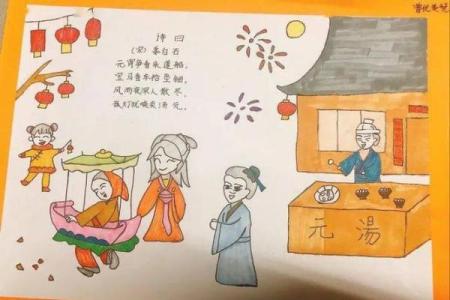 诗曰
(宋)姜白石
元宵争看采莲船,
宝马香车拾坠钿,
风雨夜深人散尽,
孤灯犹唤卖汤元.
元湯